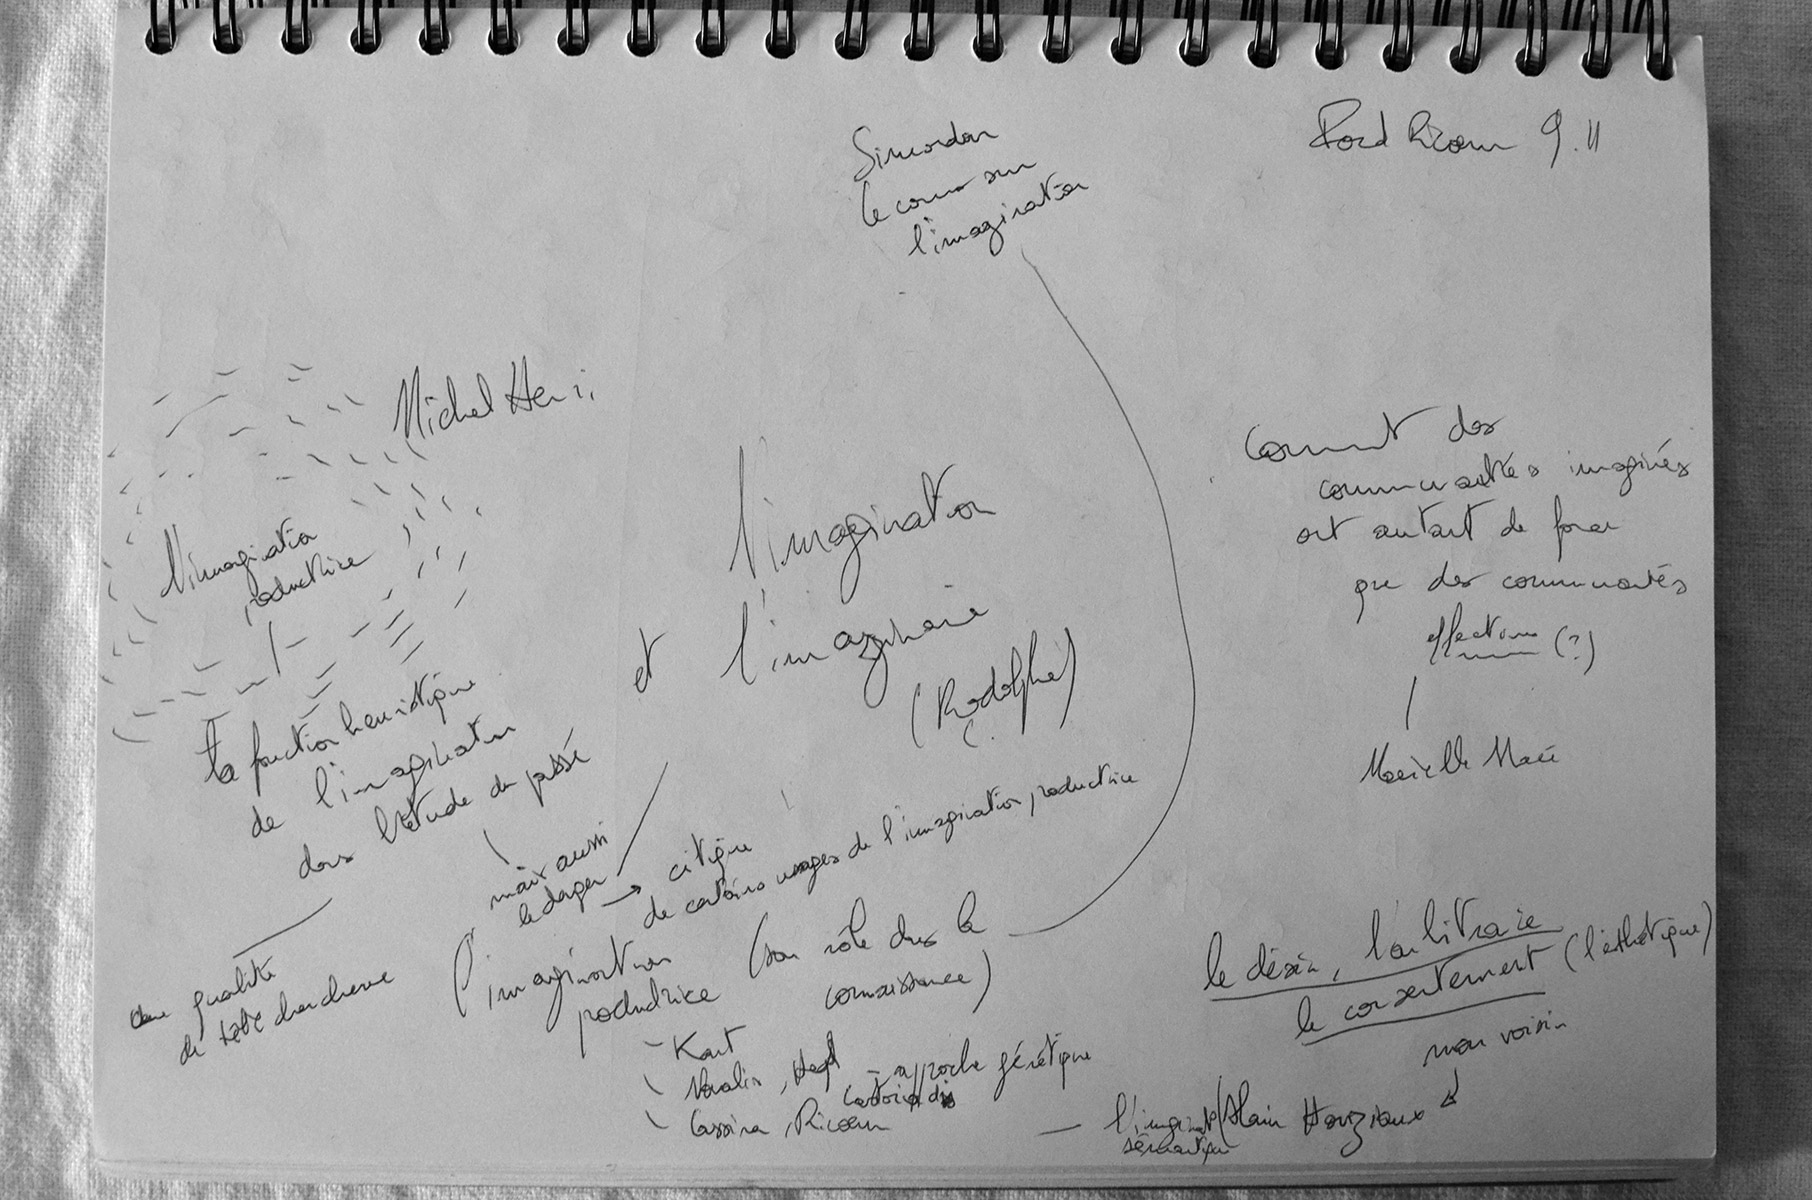 Fond Ricœur 9.11
Simondon
le cours sur
l'imagination
Michel Henri
l'imagination
productrice
l'imagination
et l'imaginaire
(Rodolphe)
Comment des
communautés imaginés
ont autant de force
que des communautés
effectives (?)
Marielle Macé
la fonction heuristique
de l'imagination
dans l'étude du passé
mais aussi
le danger → citique
de certains usages de l'imagination productrice
une qualité
de tête chercheuse
l'imagination (son rôle dans la
productrice connaissance)
- Kant
- Novalis, Hegel - approche génétique
Castoriadis
- Cassirer, Ricœur
le désir, l'arbitraire
le consentement (l'esthétique)
mon voisin
— l'imaginat° / Alain
sémantique